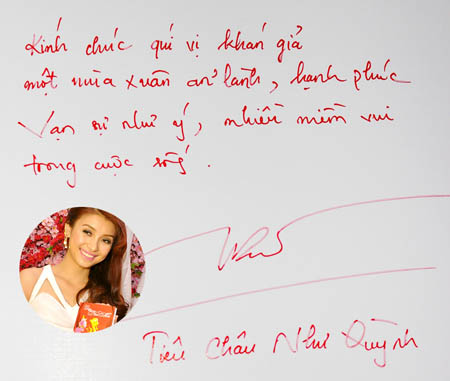 Kính chúc quí vị khán giả
một mùa xuân an lành, hạnh phúc
Vạn sự như ý, nhiều niềm vui
trong cuộc sống.
Tiêu Châu Như Quỳnh